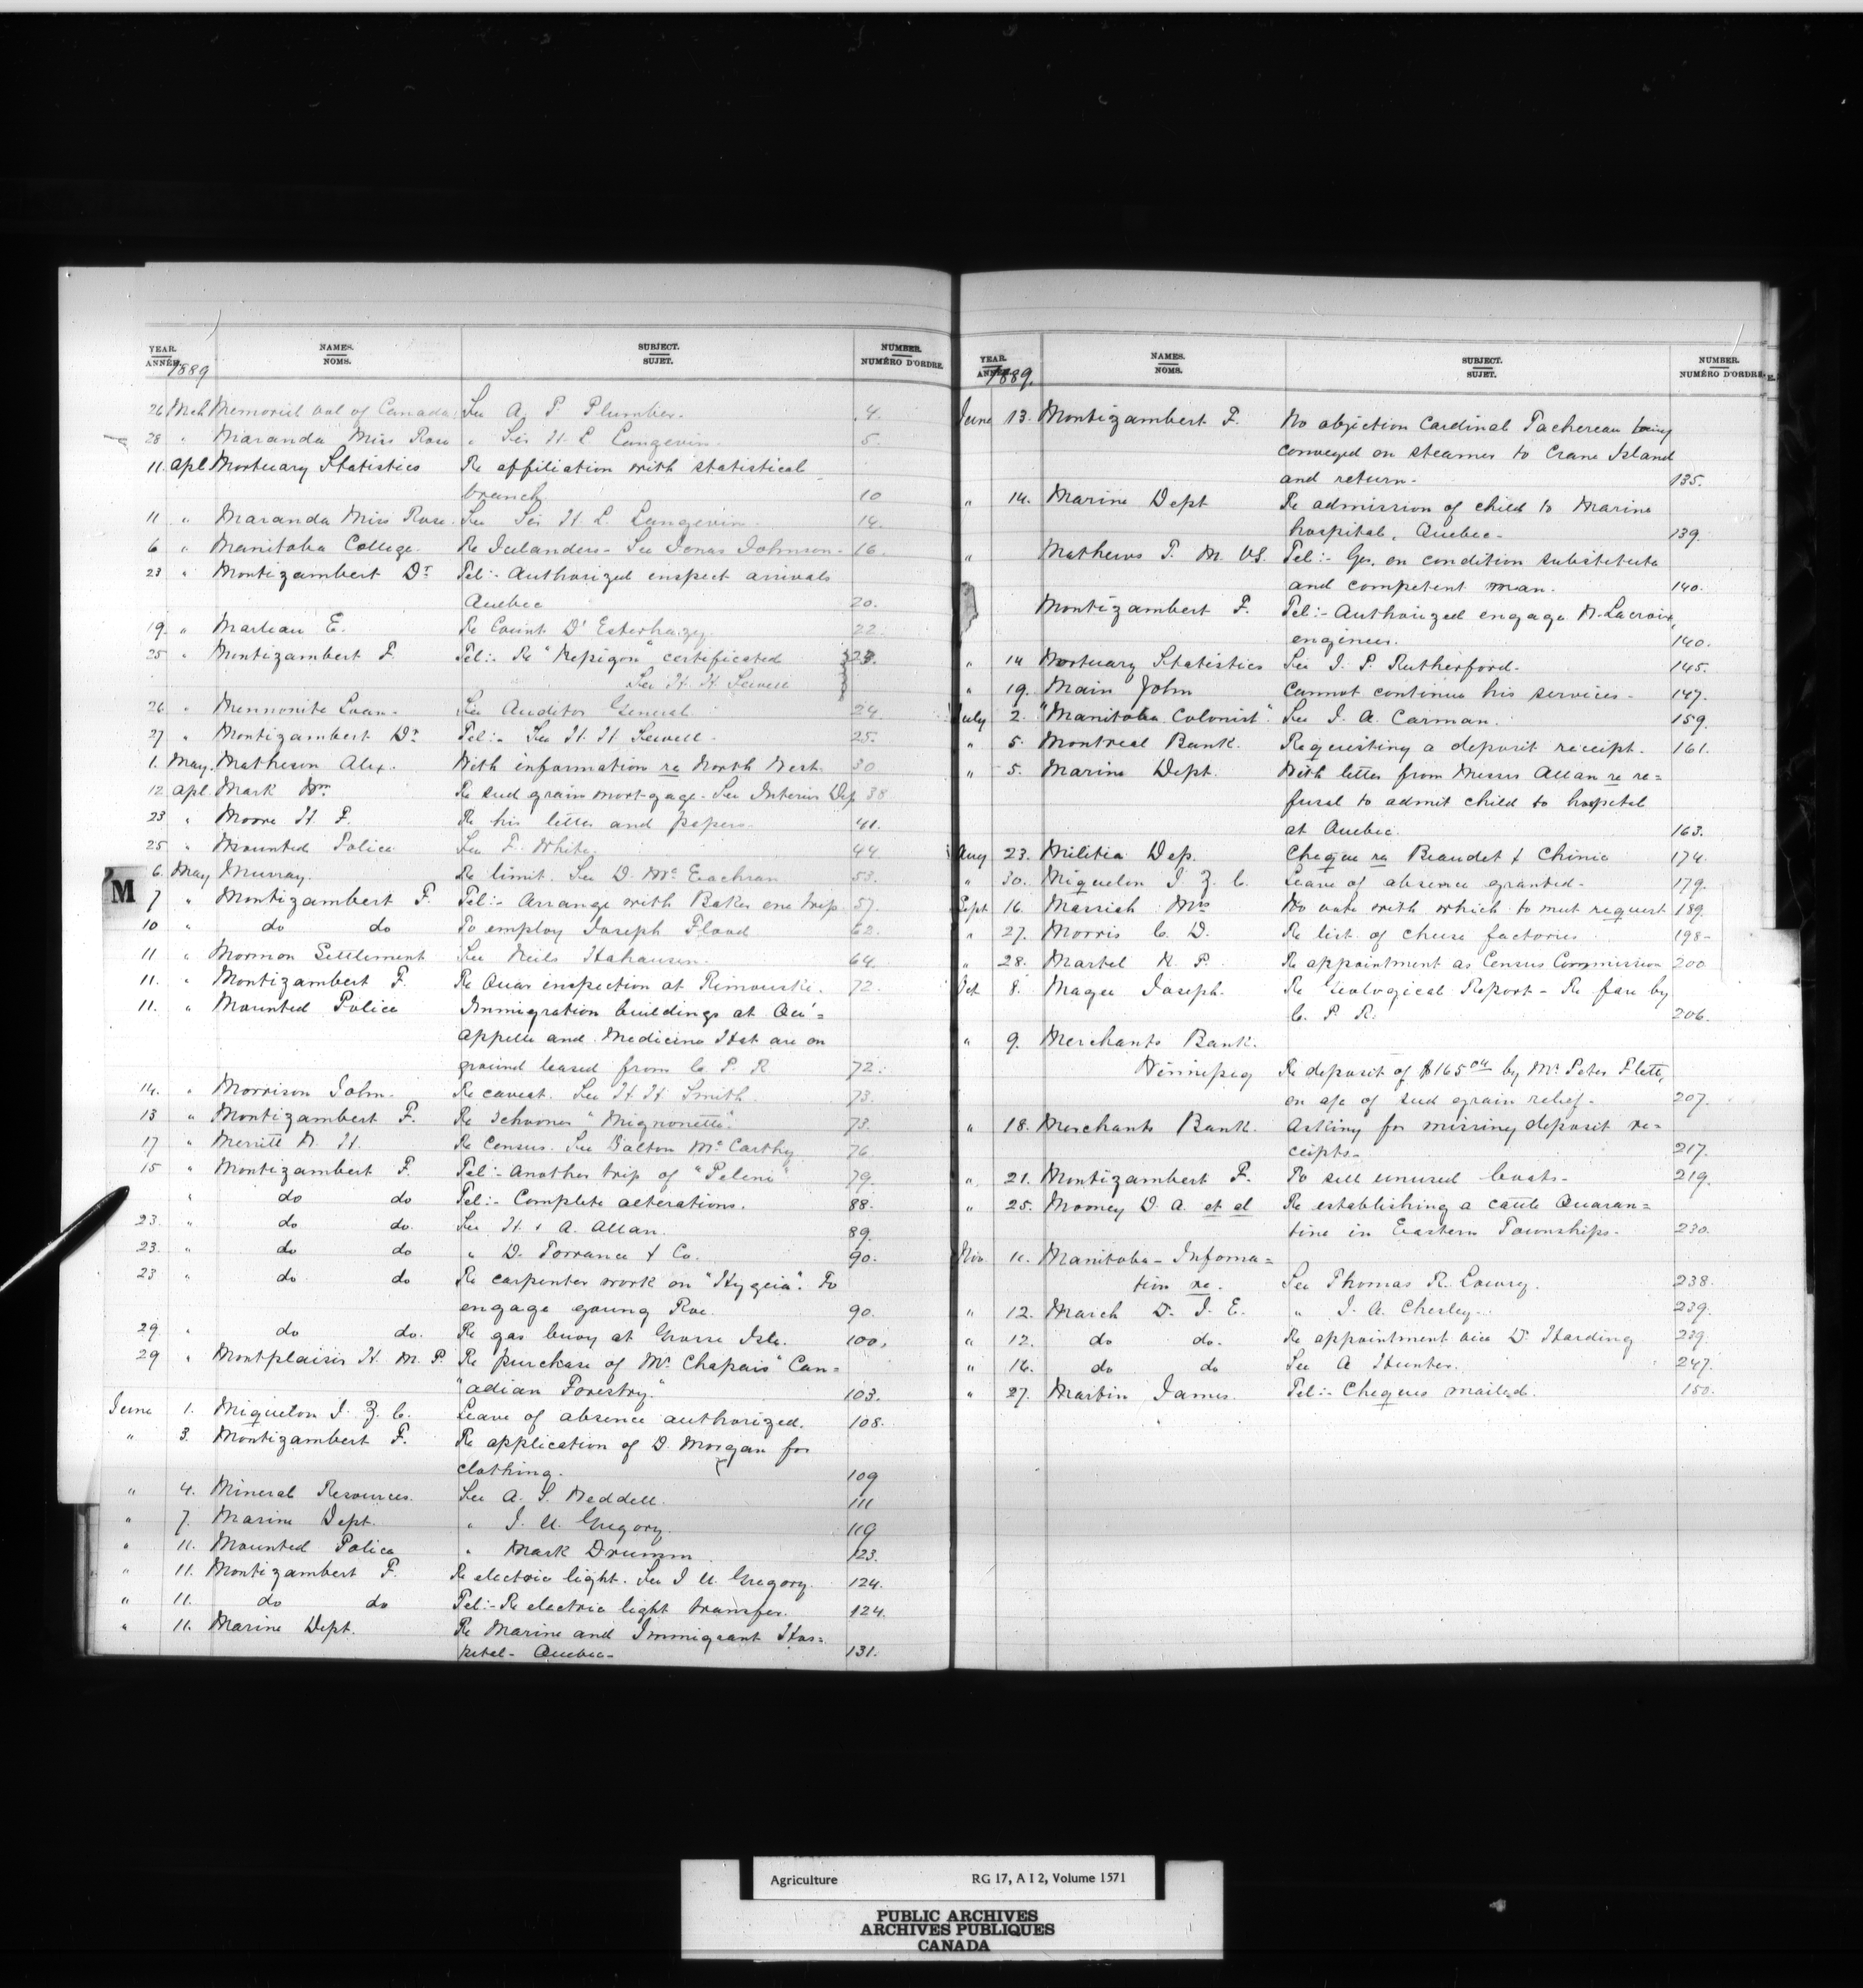 YEAR. NAMES. SUBJECT. NUMBER.
ANNÉE. NOMS. SUJET. NUMÉRO D'ORDRE.
1889
26 Mch Memorial vol of Canada. See A. P. Plumbier. 4.
28 " Maranda Miss Rose " Sir H. L. Langevin. 5.
11. apl Mortuary Statistics Re affiliation with statistical
branch 10
11 " Maranda Miss Rose. See Sir H. L. Langevin. 14.
6 " Manitoba College. Re Icelanders - See Jonas Johnson - 16.
23 " Montizambert Dr. Tel:- Authorized inspect arrivals
Quebec 20.
19. " Marleau E. Re Count D'Esterhazy 22.
25 " Montizambert F. Tel:- Re "Nepigon" certificated 23.
See H. H. Sewell
26 " Mennonite Loan. See Auditor General. 24
27 " Montizambert Dr. Tel:- See H. H. Sewell. 25.
1. May. Matheson Alex. With information re North West. 30
12 apl. Mark Wm Re seed grain mortgage. See Interior Dep 38
23 " Moore H. F. Re his letter and papers. 41.
25 " Mounted Police See F. White. 44
6. May Murray. Re limit. See D. McEachran 53.
M
7 " Montizambert F. Tel:- Arrange with Baker one trip 57.
10 " do do To employ Joseph Flood 62.
11 " Mormon Settlement See Neils 64.
11. " Montizambert F. Re Quar inspection at Rimouski. 72.
11. " Mounted Police Immigration buildings at Qu'=
Appelle and Medicine Hat are on
ground leased from C. P. R. 72.
14. " Morrison John. Re caveat. See H. H. Smith. 73.
13 " Montizambert F. Re Schooner "Mignonette". 73.
17 " Merritt N. H. Re Census. See Dalton McCarthy 76.
15 " Montizambert F. Tel:- Another trip of 79.
" do do Tel:- Complete alterations. 88.
23. " do do. See H. & A. Allan. 89.
23. " do do " D. Torrance & Co. 90.
23 " do do Re carpenter work on "Hygeia". To
engage young Roe. 90.
29 " do do. Re gas buoy at Grosse Isle. 100.
29 " Montplaisir H. M. P. Re purchase of Mr. Chapais "Can=
"adian Forestry." 103.
June 1. Miquelon J. Z. C. Leave of absence authorized. 108.
" 3. Montizambert F. Re application of D. Morgan for
clothing. 109
" 4. Mineral Resources. See A. S. Weddell. 111
" 7. Marine Dept. " J. U. Gregory. 119
" 11. Mounted Police " Mark Drumm. 123.
" 11. Montizambert F. Re electric light. See J U. Gregory. 124.
" 11. do do Tel:- Re electric light transfer. 124.
" 11. Marine Dept. Re Marine and Immigrant Hos=
pital - Quebec - 131.
YEAR. NAMES. SUBJECT. NUMBER.
ANNÉE. NOMS. SUJET. NUMÉRO D'ORDRE.
1889.
June 13. Montizambert F. No objection Cardinal Tachereau being
conveyed on steamer to Crane Island
and return. 135.
" 14. Marine Dept Re admission of child to Marine
hospital, Quebec. 139.
" Mathews T. M. VS. Tel:- Yes, on condition substitute
and competent man. 140.
Montizambert F. Tel:- Authorized engage N. Lacroix,
engineer. 140.
" 14 Mortuary Statistics See J. P. Rutherford. 145.
" 19. Main John Cannot continue his services. 147.
July 2. "Manitoba Colonist". See J. A. Carman. 159.
" 5. Montreal Bank. Requesting a deposit receipt. 161.
" 5. Marine Dept. With letter from Messrs Allan re re=
fusal to admit child to hospital
at Quebec. 163.
Aug 23. Militia Dep. Cheque re Beaudet & Chinic 174.
" 30. Miquelon J. Z. C. Leave of absence granted. 179.
Sept 16. Marriah Mrs No vote with which to meet request 189.
" 27. Morris C. D. Re list of cheese factories 198.
" 28. Martel N. P. Re appointment as Census Commission 200
Oct 8. Magee Joseph. Re Geological Report - Re fare by
C. P. R. 206.
" 9. Merchants Bank.
Winnipeg Re deposit of $165 by Mr. Peter Flett,
on a/c of seed grain relief. 207.
" 18. Merchants Bank. Asking for missing deposit re=
ceipts. 217.
" 21. Montizambert F. To sell unused boats. 219.
" 25. Mooney D. A. et al Re establishing a cattle Quaran=
tine in Eastern Townships. 230.
Nov 11. Manitoba - Informa=
tion re. See Thomas R. Lowry. 238.
" 12. March D. J. E. " J. A. Chesley. 239.
" 12. do do. Re appointment vice D. Harding 239.
" 16. do do See A Hunter. 247.
" 27. Martin James. Tel:- Cheques mailed. 150.
Agriculture RG 17, A I 2, Volume 1571
PUBLIC ARCHIVES
ARCHIVES PUBLIQUES
CANADA